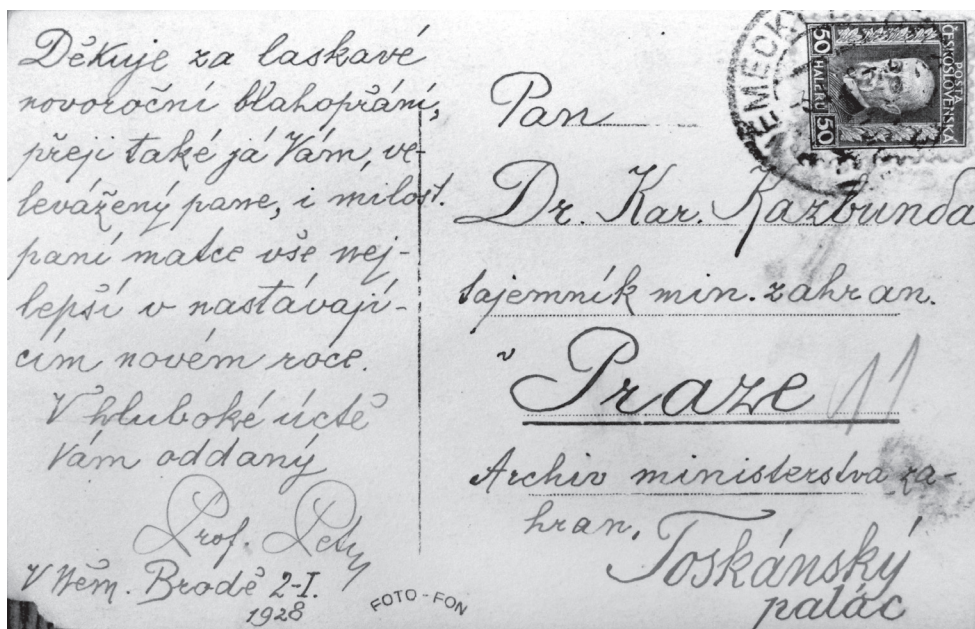 Děkuje za laskavé
novoroční blahopřání,
přeji také já Vám, ve-
levážený pane, i milost.
paní matce vše nej-
lepší v nastávají-
cím novém roce.
V hluboké úctě
Vám oddaný
Prof. Petr
V Něm. Brodě 2-I.
1928
FOTO-FON
POSTA
ČESKOSLOVENSKÁ
50 HALÉŘŮ 50
Pan
Dr. Kar. Kazbunda
tajemník min. zahran.
v
Praze 11
Archiv ministerstva za-
hran.
Toskánský
palác